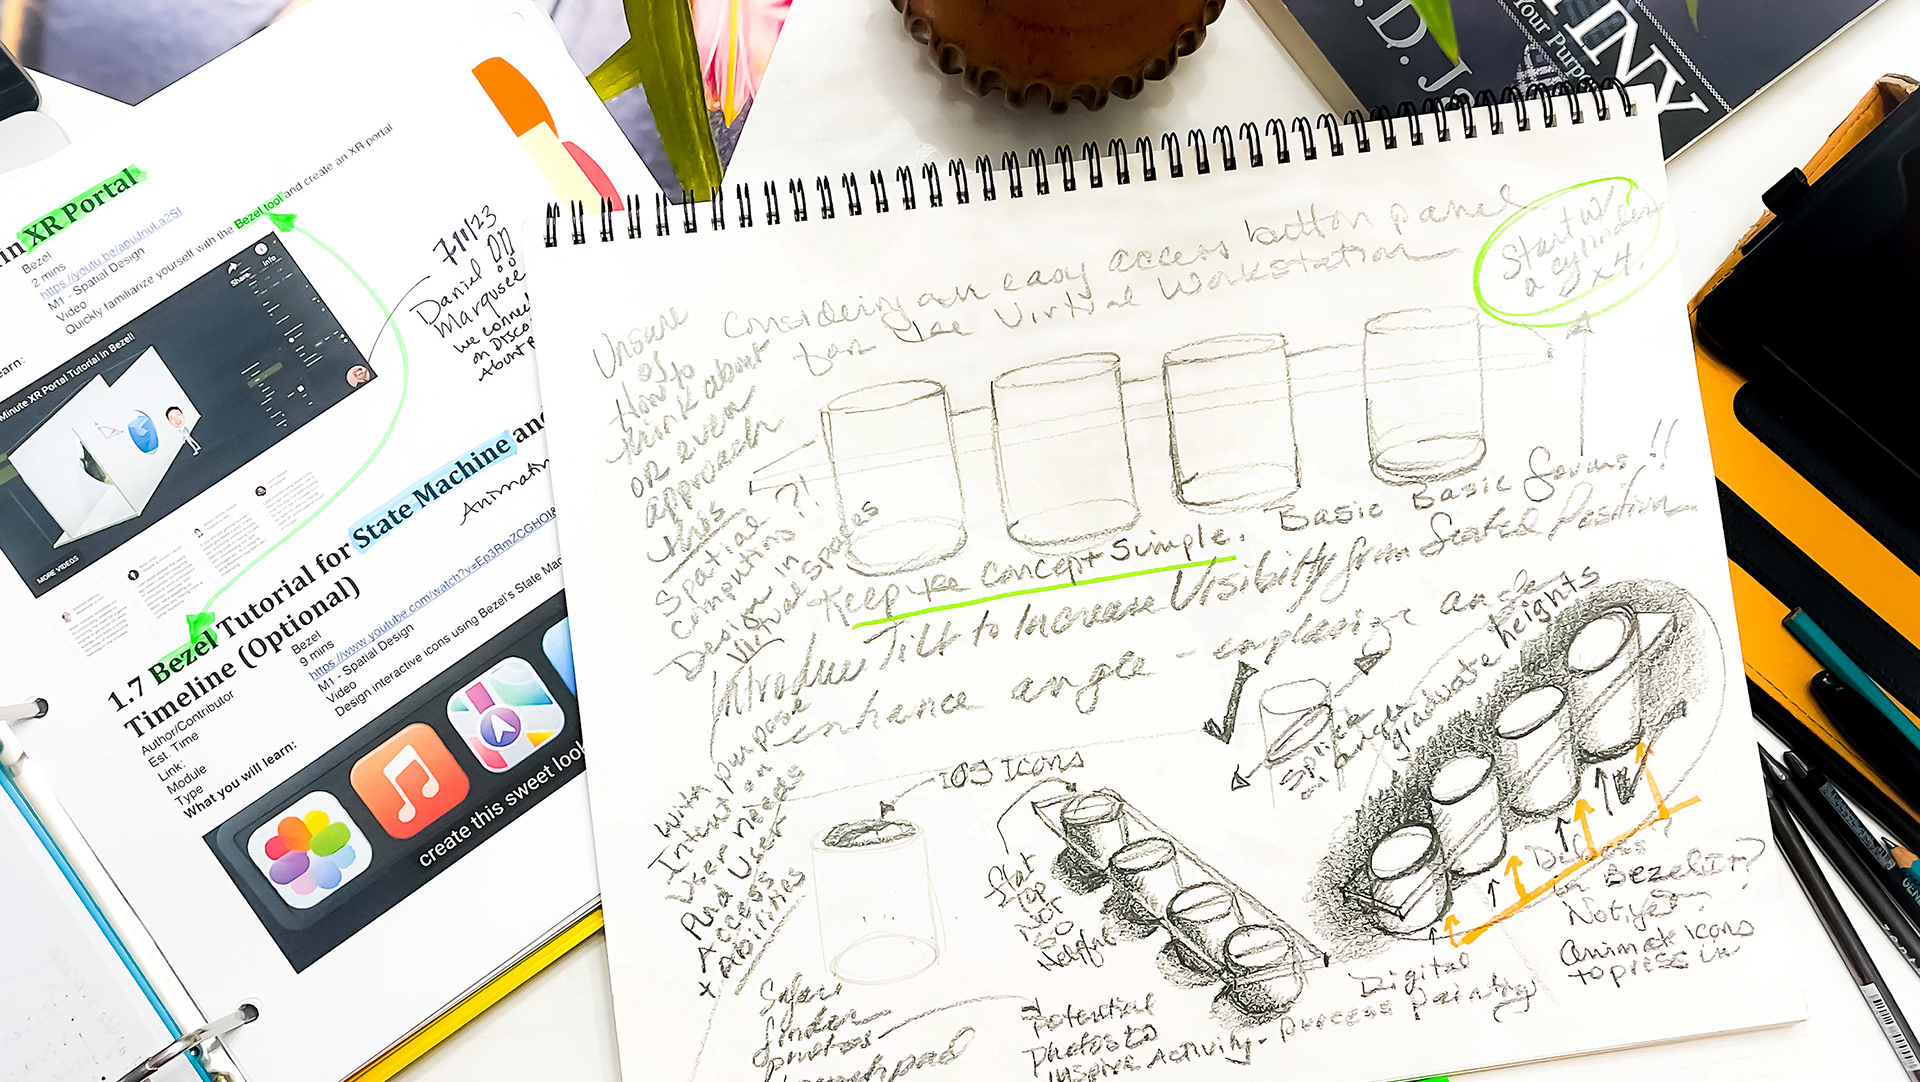 in XR Portal
Bezel
2 mins
https://youtu.be/apuJnuLa2SI
M1 - Spatial Design
Video
Quickly familiarize yourself with the Bezel tool and create an XR portal
earn:
Minute XR Portal Tutorial in Bezel!
Share
Info
MORE VIDEOS
7/11/23
Daniel
Marqusee
we connec
on Disco
About
1.7 Bezel Tutorial for State Machine and
Timeline (Optional)
Animatin
Author/Contributor
Est. Time
Link:
Module
Type
What you will learn:
Bezel
9 mins
https://www.youtube.com/watch?v=Ep3RmZCGHOI&
M1 - Spatial Design
Video
Design interactive icons using Bezel's State Mac
create this sweet loo
D. J
TINY
Your Purpo
Considering an easy access button panel
for use Virtual Workstation
Start w/
a cylinder
x 4.
Unsure
of
How to
think about
or even
approach
this
Spatial ?!
Computing
Design in
Virtual spaces
Keep the Concept Simple.
Basic Basic Forms!!
Introduce Tilt to Increase Visibility from Seated Position
enhance angle - emphasize angle
With purpose
Intent on
User needs
And User
Access
+ Abilities
iOS Icons
Splice
on angle
graduate heights
flat
top
Not
so
Helpful
Safari
finder
photos
Launchpad
Potential
Photos to
inspire Activity - process painting
Digital
in Bezel
Not yet
Animate icons
to press in